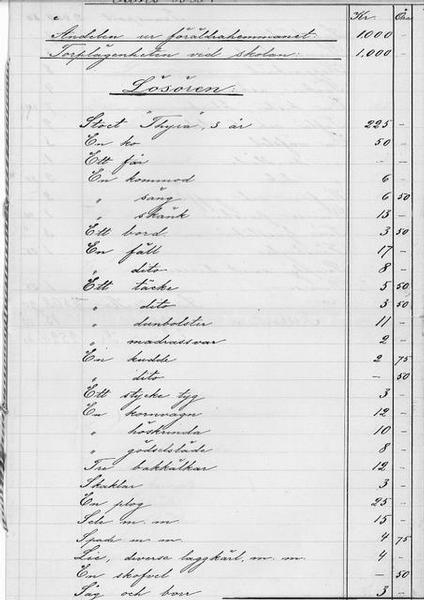 Kr. Öre
Andelen ur föräldrahemmanet: 1000 -
Torplägenheten vid skolan: 1,000 -
Lösören:
Stoet "Thyra", 5 år 225 -
En ko 50 -
Ett får - -
En kommod 6 -
" säng 6 50
" skänk 13 -
Ett bord 3 50
En fäll 17 -
" dito 8 -
Ett täcke 5 50
" dito 3 50
" dunbolster 11 -
" madrassvar 2 -
En kudde 2 75
" dito - 50
Ett stycke tyg 3 -
En kornvagn 12 -
" höskrinda 10 -
" gödselsläde 8 -
Tre bakkälkar 12 -
Skaklar 3 -
En plog 25 -
Sele m. m. 15 -
Spade m. m. 4 75
Lie, diverse laggkärl, m. m. 4 -
En skofvel - 50
Såg och borr 3 -